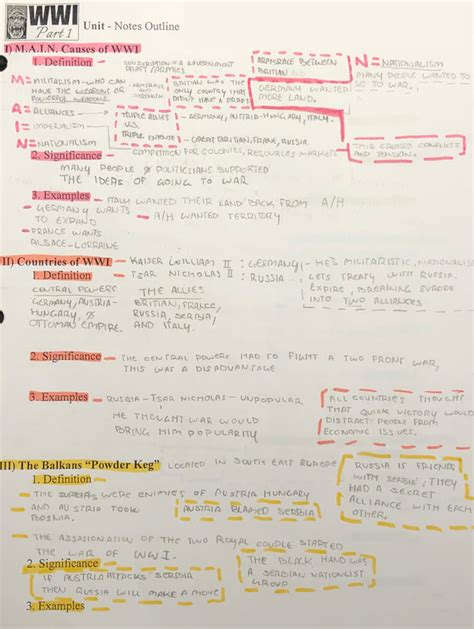 WWI
Part 1
Unit - Notes Outline
I) M.A.I.N. Causes of WWI
1. Definition - CONSCRIPTION = GOVERNMENT
DRAFT/
ARMSRACE BETWEEN
BRITIAN
N = NATIONALISM
MANY PEOPLE WANTED TO
GO TO WAR.
M = MILITARISM - WHO CAN
HAVE THE WEAPONS OR
POWERFUL WEAPONS.
BRITIAN WAS THE
ONLY COUNTRY THAT
DIDN'T HAVE A DRAFT
GERMANY WANTED
MORE LAND.
A = ALLIANCES
TRIPLE ALINET
V.S.
TRIPLE ENTENTE
- GERMANY, AUSTRIA-HUNGARY, ITALY.
- GREAT BRITIAN, FRANE, RUSSIA.
I = IMPERIALISM
N = NATIONALISM
COMPETITION FOR COLONIES, RESOURCES MARKETS
THIS CREATED CONFLICTS
AND TENSION.
2. Significance
MANY PEOPLE & POLITICIANS SUPPORTED
THE IDEAS OF GOING TO WAR
3. Examples - ITALY WANTED THEIR LAND BACK FROM A/H
- GERMANY WANTS
TO EXPAND
- A/H WANTED TERRITORY
- FRANCE WANTS
ALSACE-LORRAINE
II) Countries of WWI - KAISER WILLIAM II : GERMANY - HE'S MILITARISTIC, NATIONALISM
1. Definition - TSAR NICHOLAS II : RUSSIA - LETS TREATY WITH RUSSIA
EXPIRE, BREAKING EUROPE
INTO TWO ALLIANCES
CENTRAL POWERS
GERMANY, AUSTRIA-
HUNGARY, &
OTTOMAN EMPIRE.
THE ALLIES
BRITIAN, FRANCE,
RUSSIA, SERBIA,
AND ITALY.
2. Significance - THE CENTRAL POWERS HAD TO FIGHT A TWO FRONT WAR,
THIS WAS A DISADVANTAGE
3. Examples - RUSSIA - TSAR NICHOLAS - UNPOPULAR
HE THOUGHT WAR WOULD
BRING HIM POPULARITY
ALL COUNTRIES THOUGHT
THAT QUICK VICTORY WOULD
DISTRACT PEOPLE FROM
ECONOMIC ISSUES.
III) The Balkans "Powder Keg" LOCATED IN SOUTH EAST EUROPE
1. Definition
- THE WERE ENIMIES OF AUSTRIA HUNGARY
- AND AUSTRIA TOOK
BOSNIA.
AUSTRIA BLAMED SERBIA
RUSSIA IS FRIENDS
WITH SERBIA, THEY
HAD A SECRET
ALLIANCE WITH EACH
OTHER.
- THE ASSASINATION OF THE TWO ROYAL COUPLE STARTED
THE WAR OF WWI.
2. Significance
IF AUSTRIA ATTACKS SERBIA
THEN RUSSIA WILL MAKE A MOVE
THE BLACK HAND WAS
A SERBIAN NATIONLIST
GROUP
3. Examples